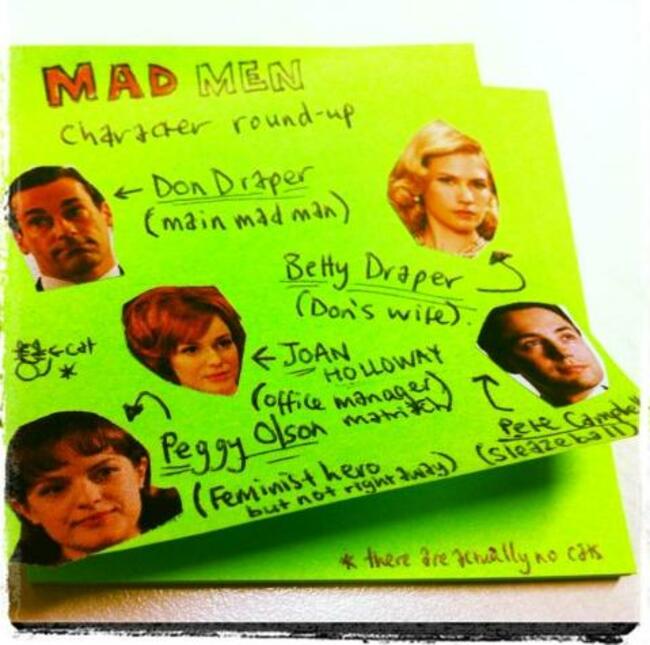 MAD MEN
Character round-up
← Don Draper
(main mad man)
Betty Draper
(Don's wife).
← cat
*
← JOAN
HOLLOWAY
(office manager)
matriarch
Peggy Olson
(Feminist hero
but not right away)
Pete Campbell
(sleazeball)
* there are actually no cats